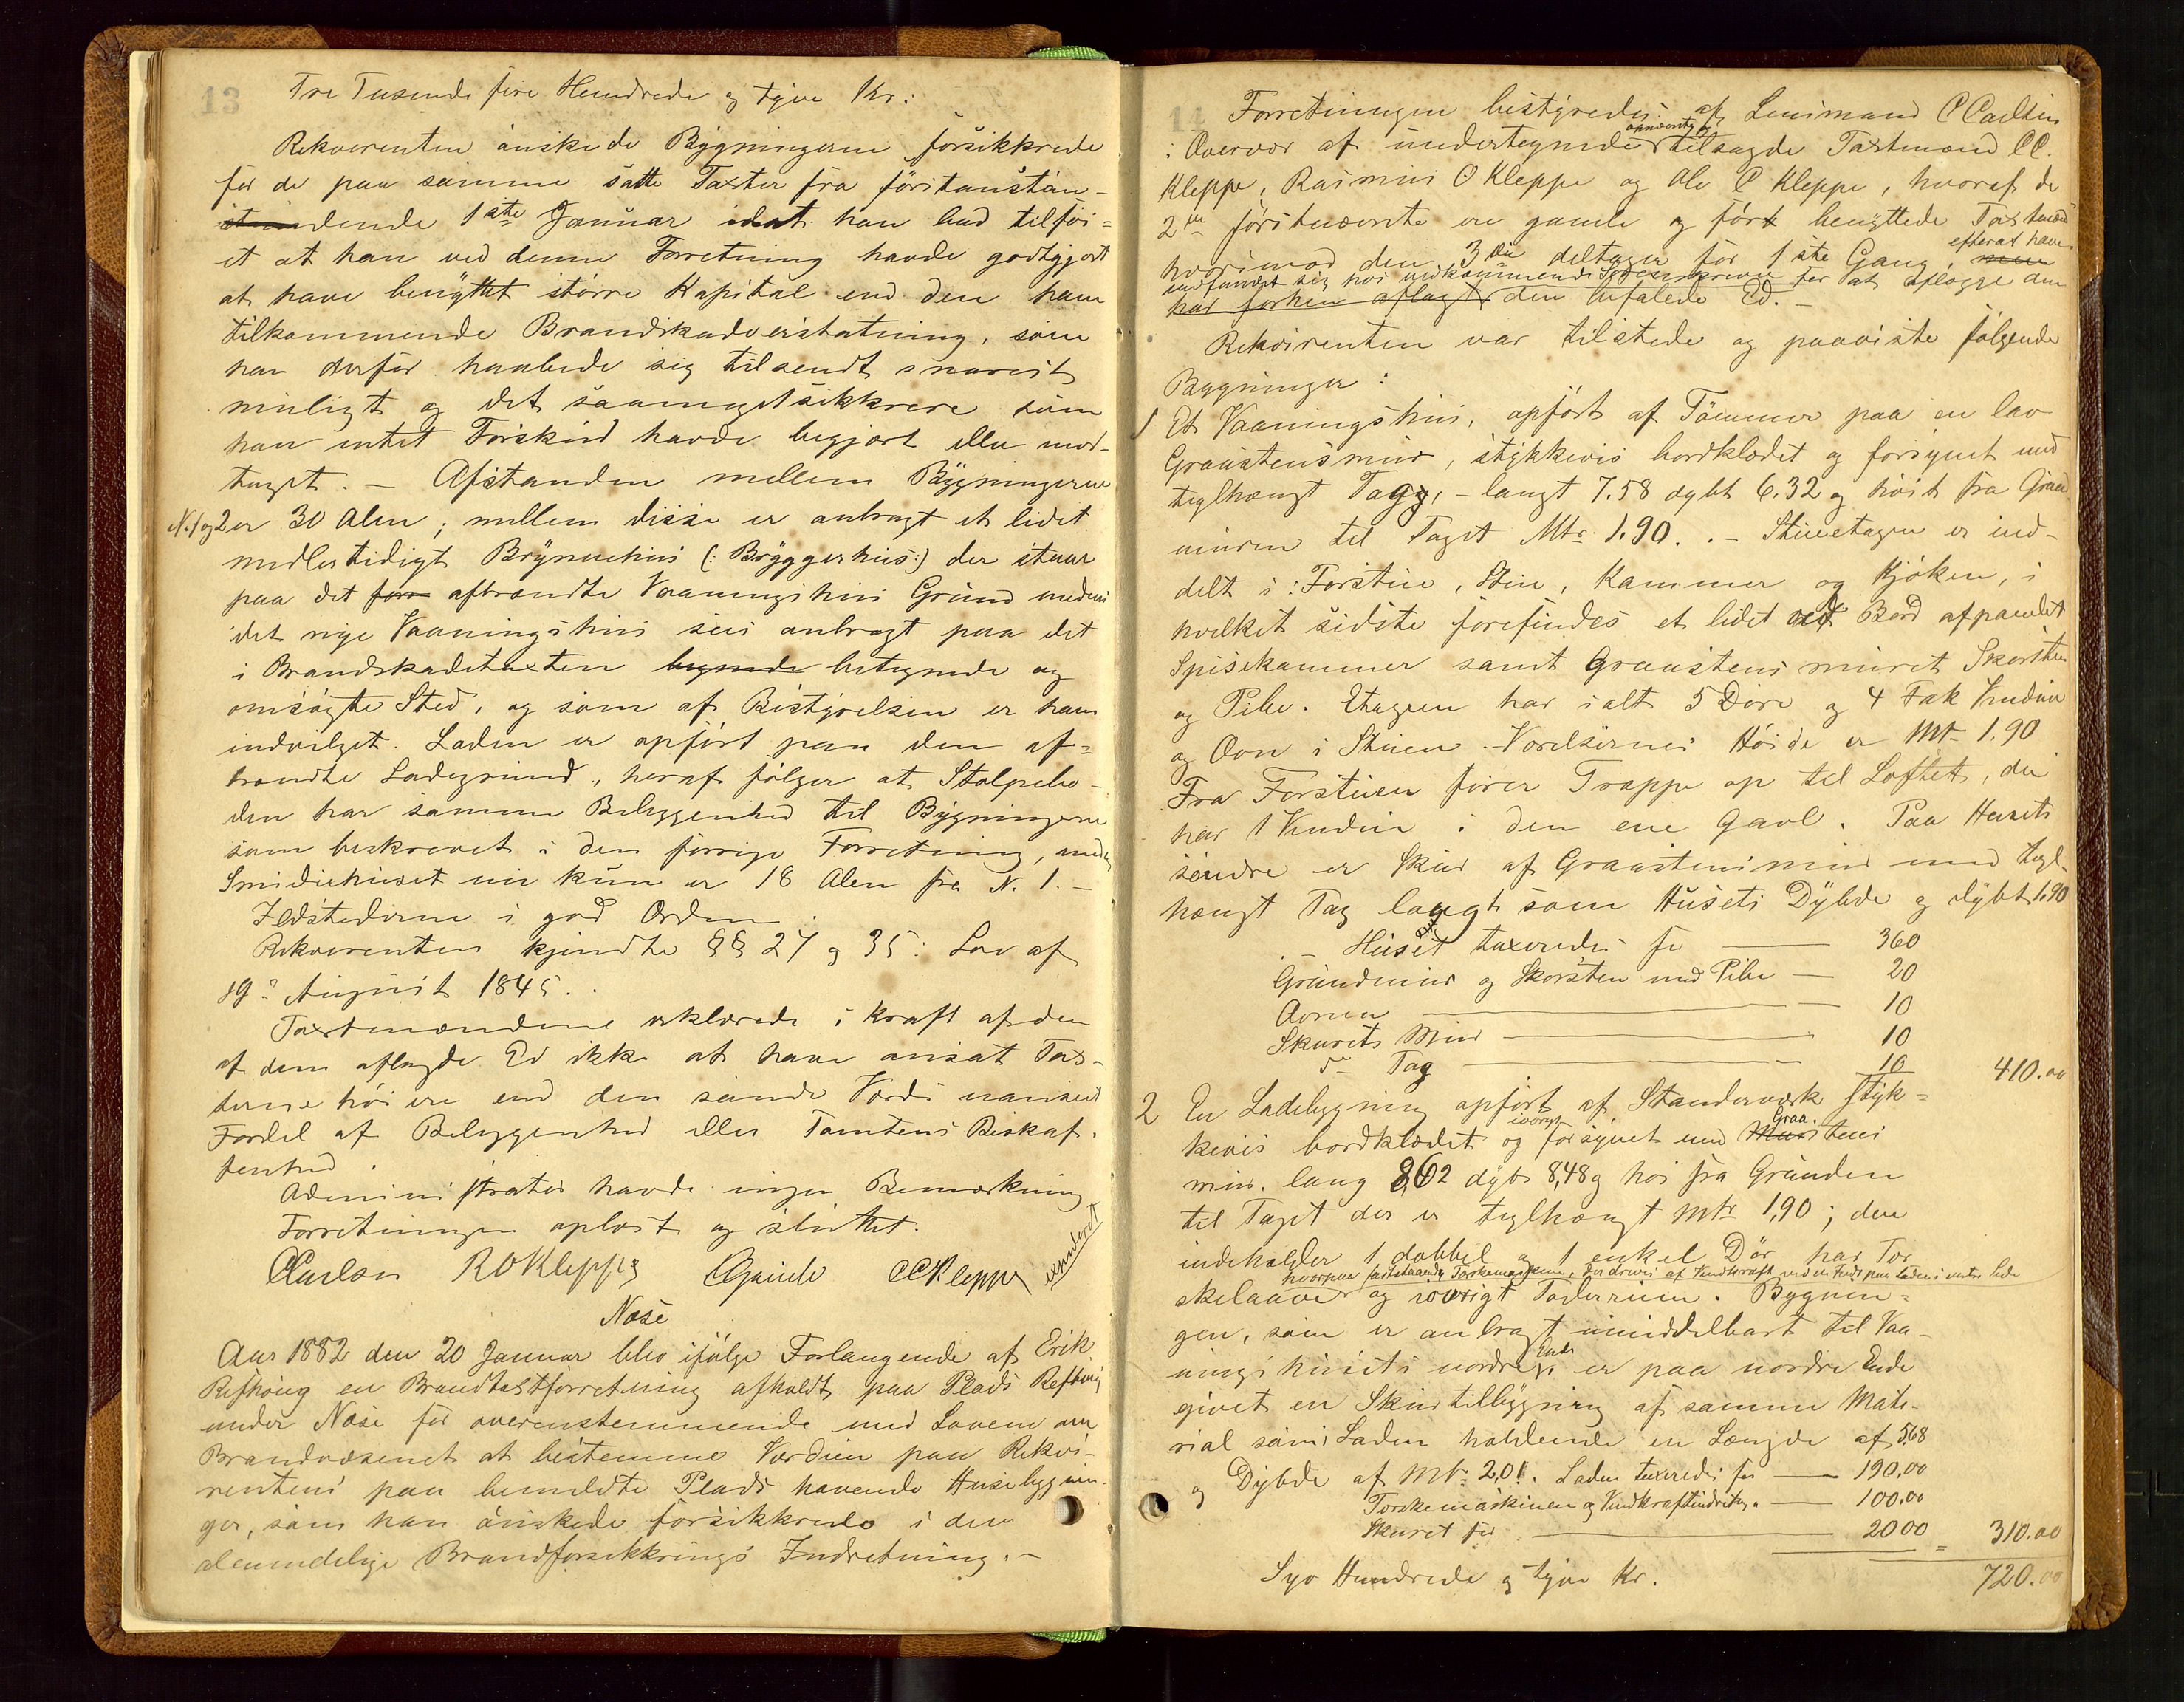 13
Tre Tusende fire Hundrede og tyve Kr:
Rekverenten ønskede Bygningerne forsikkrede
for de paa samme satte Taxter fra førstanstun-
stundende 1ste Januar idet han bad tilføi-
et at han ved denne Forretning havde godtgjort
at have benyttet større Kapital end den ham
tilkommende Brandskadeerstatning, som
han derfor haabede sig tilsendt snarest
muligt og det saameget sikkrere som
han intet Forskud havde begjært eller mod-
taget. – Afstanden mellem Bygningerne
N. 1 og 2 er 30 Alen; mellem disse er anbragt et lidet
midlertidigt Brynnehus (: Bryggerhus:) der staar
paa det for afbrændte Vaaningshus Grund medens
det nye Vaaningshus sees anbragt paa det
i Brandskadetaxten begnede betegnede og
omsøgte Sted, og som af Bestyrelsen er ham
indvilget. Laden er opført paa den af=
brændte Ladegrund, heraf følger at Stolpebo-
den har samme Beliggenhed til Bygningerne
som beskrevet i den forrige Forretning, medens
Smidiehuset nu kun er 18 Alen fra N. 1. –
Ildstederne i god Orden.
Rekverenten kjendte §§ 27 og 35: Lov af
19de August 1845.
Taxtmændene erklærede i kraft af den
af dem aflagde Ed ikke at have ansat Tax-
terne høiere end den sande Værdi uanseet
Fordel af Beliggenhed eller Tomtens Beskaf-
fenhed.
Administrator havde ingen Bemærkning
Forretningen oplæst og sluttet.
CCarlsen ROKleppe CCKleppe
Nose
Aar 1882 den 20 Januar blev ifølge Forlangende af Erik
Refhoug en Brandtaxtforretning afholdt paa Plads Refhoug
under Nose for overensstemmende med Loven om
Brandvæsenet at bestemme Værdien paa Rekvi-
rentens paa bemeldte Plads havende Husebygnin-
ger, som han ønskede forsikkrede i den
almindelige Brandforsikkrings Indretning. –
14
Forretningen bestyredes af Lensmand C Carlsen
i Overvær af undertegnede opnævnte og tilsagde Taxtmænd CC.
Kleppe, Rasmus O Kleppe og Ole C Kleppe, hvoraf de
2de førstnævnte ere gamle og før benyttede Taxtmænd
hvorimod den 3die deltager for 1ste Gang, efterat have
indfundet sig hos vedkommende Sorenskriver for at aflægge den
har forhen aflagt den befalede Ed. –
Rekvirenten var tilstede og paaviste følgende
Bygninger:
1 Et Vaaningshus, opført af Tømmer paa en lav
Graastensmur, stykkevis bordklædet og forsynet med
teglhængt Tag, – langt 7.58 dybt 6.32 og høit fra Grund
muren til Taget Mtr 1.90. . – Stueetagen er ind-
delt i: Forstue, Stue, Kammer og Kjøken, i
hvilket sidste forefindes et lidet ved Bord afpanelet
Spisekammer samt Graastens muret Skorsten
og Pibe. Etagen har ialt 5 Døre og 4 Fak Vinduer
og Ovn i Stuen. Værelsernes Høide er Mtr 1.90
Fra Forstuen fører Trappe op til Loftet, der
har 1 Vindue i den ene Gavl. Paa Husets
søndre er Skur af Graastensmur med tegl-
hængt Tag langt som Husets Dybde og dybt 1.90
Huset taxeredes for — 360
Grundmur og Skorsten med Pibe — 20
Ovnen — 10
Skurets Mur — 10
do Tag — 10 410.00
2 En Ladebygning opført af Standerværk styk=
kevis bordklædet og forsynet med Graa Murstens
mur. lang 8,62 dyb 8,48 og høi fra Grunden
til Taget der er teglhængt Mtr 1,90; den
indeholder 1 dobbel og 1 enkel Dør, har Tor
hvorpaa faststaaende Torskemaskine, der drives af Vindkraft ved en Fods paa Ladens vestre Side
skelaave og iøvrigt Foderrum. Bygnin=
gen, som er anbragt umiddelbart til Vaa-
ningshusets nordre Ende, er paa nordre Ende
givet en Skurtilbygning af samme Mate-
rial som Laden holdende en Længde af 5,68
og Dybde af Mtr 2,01. Laden taxeredes for — 190,00
Torskemaskinen og Vindkraftindretn. — 100.00
Skuret for — 20 00 = 310.00
Syv Hundrede og tyve Kr. 720.00